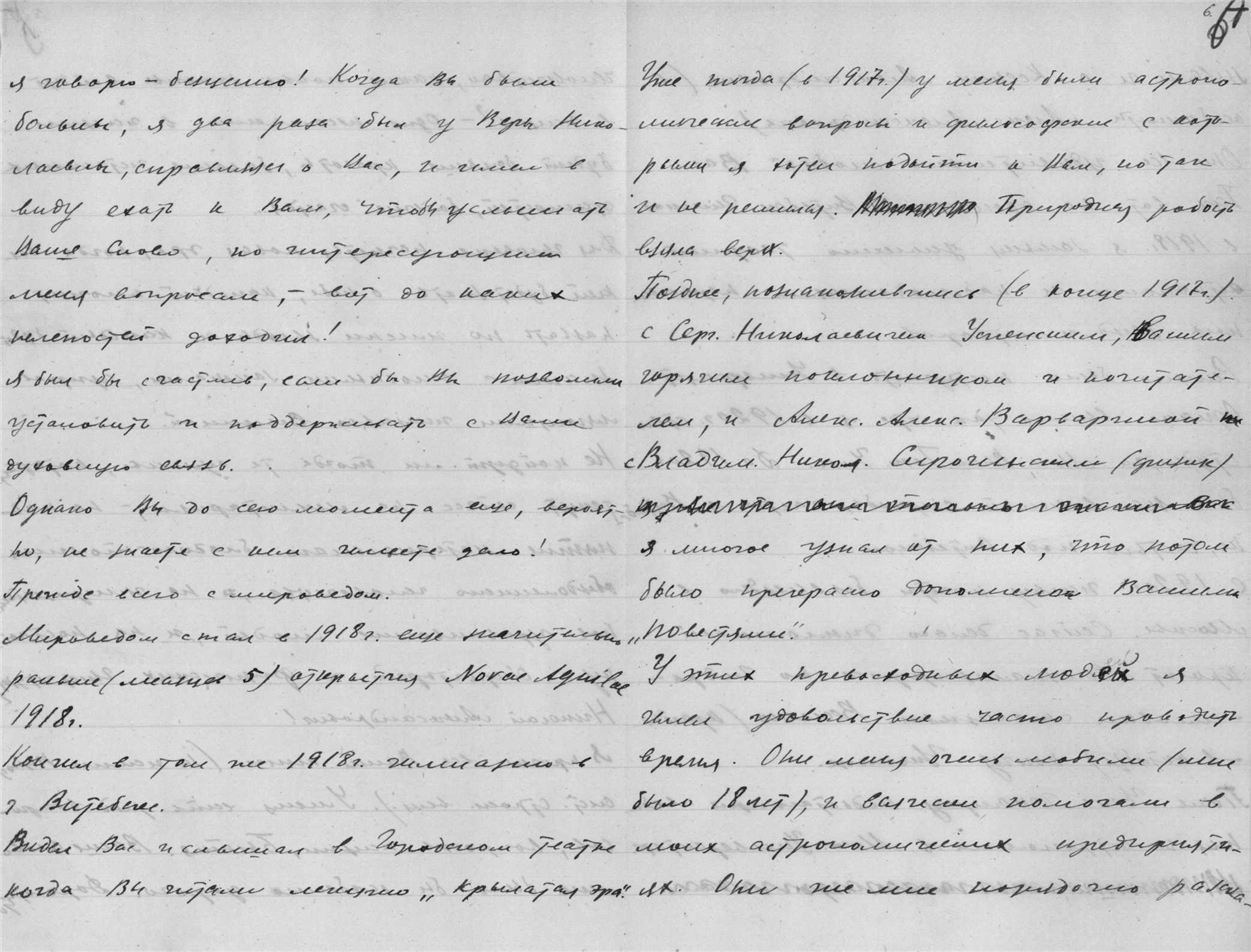 я говорю – бесценно! Когда Вы были
больны, я два раза был у Веры Нико-
лаевны, справлялся о Вас, и имел в
виду ехать к Вам, чтобы услышать
Ваше Слово, по интересующим
меня вопросам, – вот до каких
нелепостей доходил!
Я был бы счастлив, если бы Вы позволили
установить и поддерживать с Вами
духовную связь.
Однако Вы до сего момента еще, вероят-
но, не знаете с кем имеете дело!
Прежде всего с мироведом.
Мироведом стал в 1918г. еще значительно
раньше (месяцев 5) открытия Novae Aquilae
1918г.
Кончил в том же 1918г. гимназию в
г. Витебске.
Видел Вас и слышал в Городском театре
когда Вы читали лекцию „Крылатая эра“.
6.
Уже тогда (в 1917г.) у меня были астроно-
мические вопросы и философские с кото-
рыми я хотел подойти к Вам, но так
и не решился. Природная робость
взяла верх.
Позднее, познакомившись (в конце 1917г.)
с Серг. Николаевичем Успенским, Вашим
горячим поклонником и почитате-
лем, и Алекс. Алекс. Варваргиной
с Владим. Никол. Сирочинским (физик)
я многое узнал от них, что потом
было прекрасно дополнено Вашими
„повестями“.
У этих превосходных людей я
имел удовольствие часто проводить
время. Они меня очень любили (мне
было 18 лет), и всячески помогали в
моих астрономических предприяти-
ях. Они же мне порядочно расска-